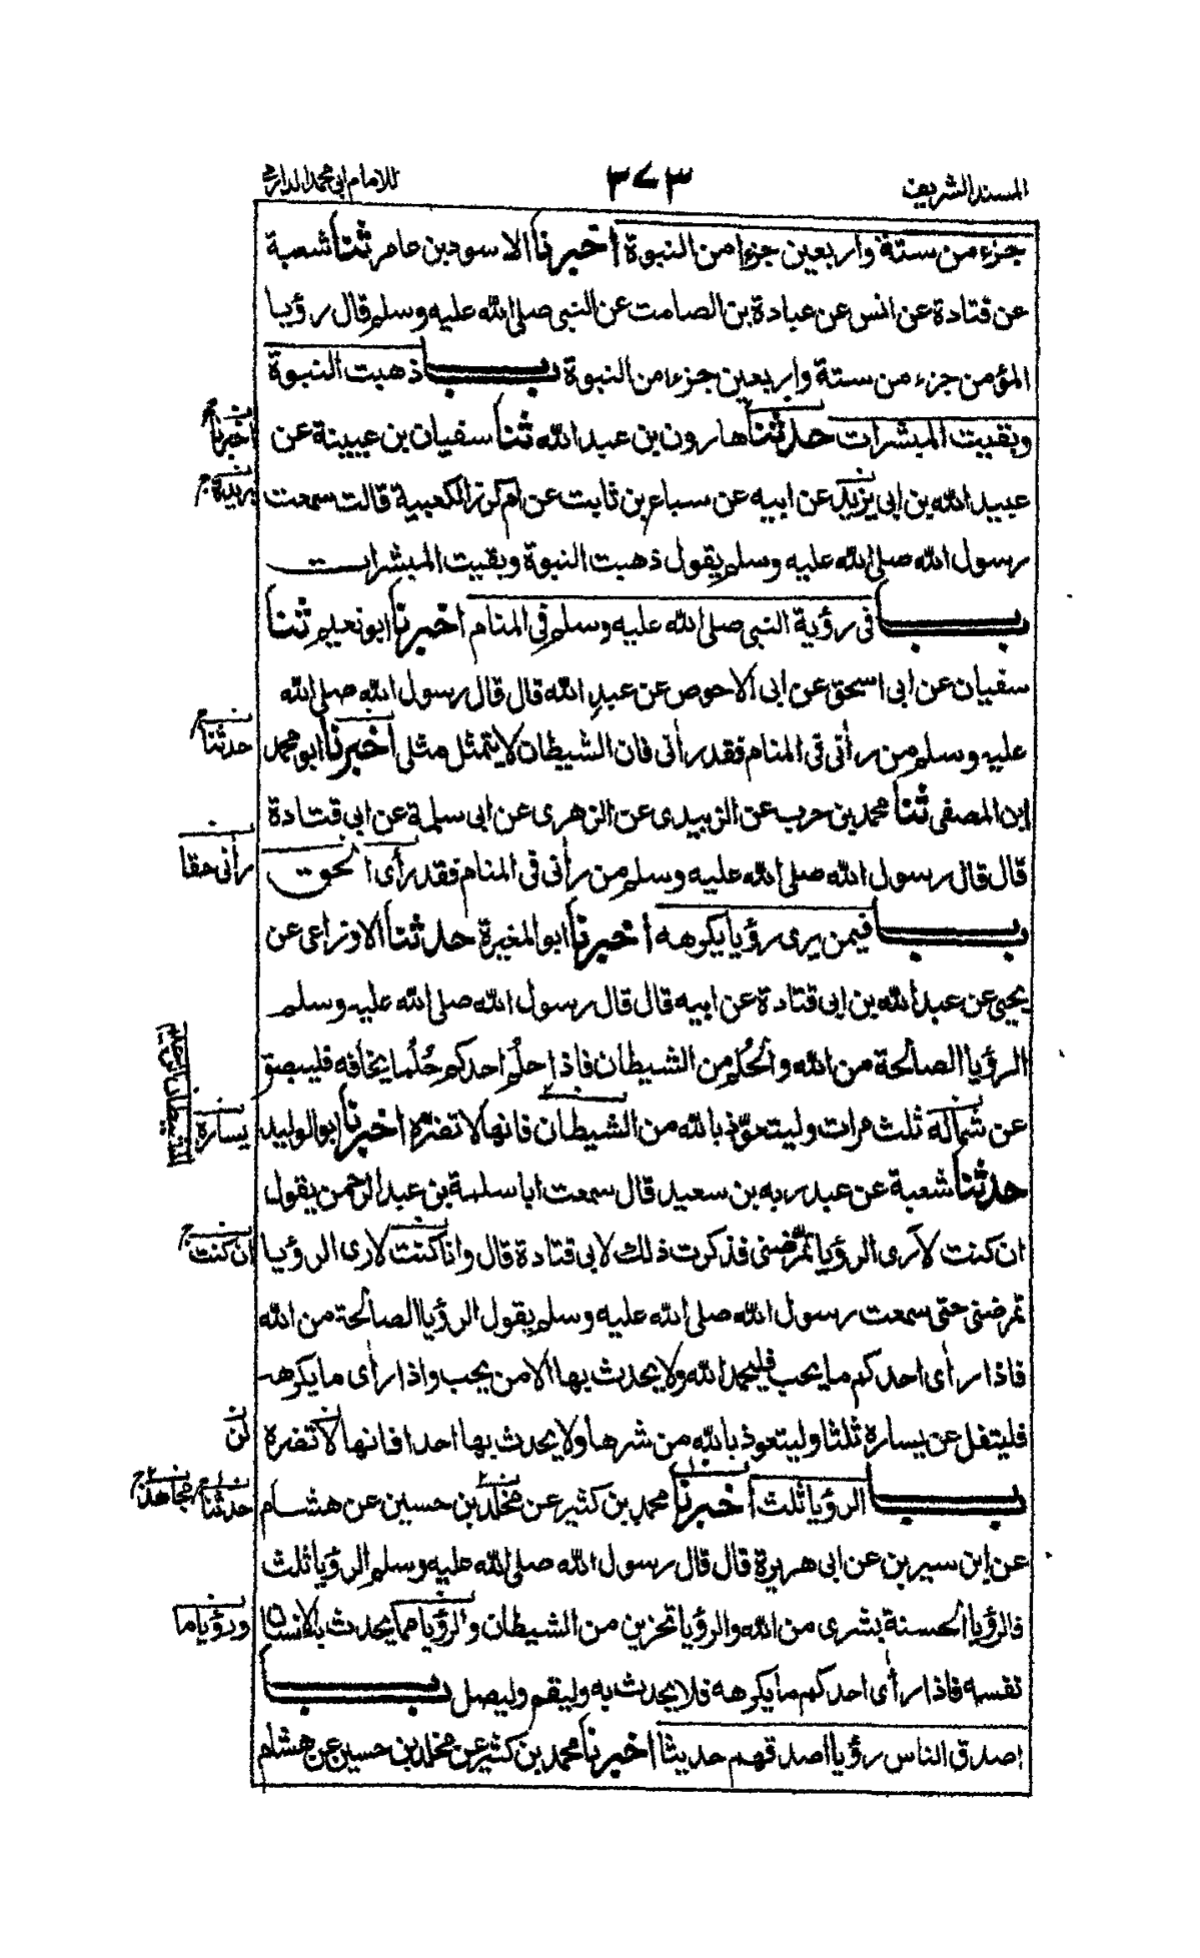 المسند الشريف
٣٧٣
للامام ابي محمد الدارمي
جزء من ستة واربعين جزءا من النبوة اخبرنا الاسود بن عامر ثنا شعبة
عن قتادة عن انس عن عبادة بن الصامت عن النبي صلى الله عليه وسلم قال رؤيا
المؤمن جزء من ستة واربعين جزءا من النبوة باب ذهبت النبوة
وبقيت المبشرات حدثنا هارون بن عبد الله ثنا سفيان بن عيينة عن
اخبرنا
عبيد الله بن ابي يزيد عن ابيه عن سباع بن ثابت عن ام كرز الكعبية قالت سمعت
بريدة
رسول الله صلى الله عليه وسلم يقول ذهبت النبوة وبقيت المبشرات
باب في رؤية النبي صلى الله عليه وسلم في المنام اخبرنا ابو نعيم ثنا
سفيان عن ابي اسحق عن ابي الاحوص عن عبد الله قال قال رسول الله صلى الله
عليه وسلم من رأني في المنام فقد رأني فان الشيطان لا يتمثل مثلي اخبرنا ابو محمد
حدثنا
ابن المصفى ثنا محمد بن حرب عن الزبيدي عن الزهري عن ابي سلمة عن ابي قتادة
قال قال رسول الله صلى الله عليه وسلم من رأني في المنام فقد رأى الحق
رأني حقا
باب فيمن يرى رؤيا يكرهه اخبرنا ابو المغيرة حدثنا الاوزاعي عن
يحيى عن عبد الله بن ابي قتادة عن ابيه قال قال رسول الله صلى الله عليه وسلم
الرؤيا الصالحة من الله والحُلم من الشيطان فاذا حلم احدكم حُلُما يخافه فليبصق
عن شماله ثلث مرات وليتعوّذ بالله من الشيطان فانها لا تضره اخبرنا ابو الوليد
يساره
حدثنا شعبة عن عبد ربه بن سعيد قال سمعت ابا سلمة بن عبد الرحمن يقول
ان كنت لأرى الرؤيا تُمرّضني فذكرت ذلك لابي قتادة قال وانا كنت لارى الرؤيا
ان كنت
تمرضني حتى سمعت رسول الله صلى الله عليه وسلم يقول الرؤيا الصالحة من الله
فاذا رأى احدكم ما يحب فليحمد الله ولا يحدث بها الا من يحب واذا رأى ما يكره
فليتفل عن يساره ثلثا وليتعوذ بالله من شرها ولا يحدث بها احدا فانها لا تضره
لن
باب الرؤيا ثلث اخبرنا محمد بن كثير عن مخلد بن حسين عن هشام
حدثنا
مجاهد
عن ابن سيرين عن ابي هريرة قال قال رسول الله صلى الله عليه وسلم الرؤيا ثلث
فالرؤيا الحسنة بشرى من الله والرؤيا تحزين من الشيطان والرؤيا مما يحدث به الانسان
ورؤيا ما
نفسه فاذا رأى احدكم ما يكرهه فلا يحدث به وليقم وليصل باب
اصدق الناس رؤيا اصدقهم حديثا اخبرنا محمد بن كثير عن مخلد بن حسين عن هشام